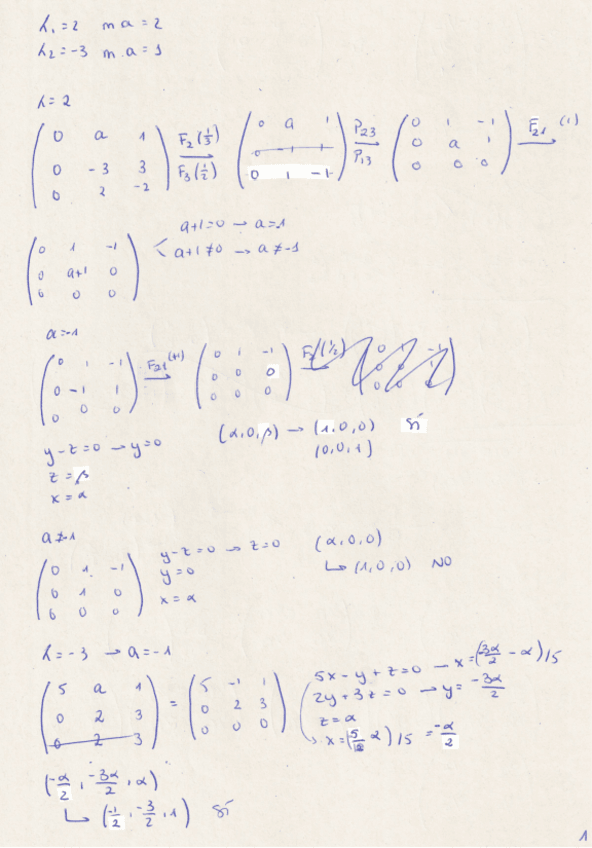 λ₁ = 2 m a = 2
λ₂ = -3 m.a = 1
λ = 2
( 0 a 1 ; 0 -3 3 ; 0 2 -2 ) F₂(1/3) F₃(1/2) → ( 0 a 1 ; 0 -1 1 ; 0 1 -1 ) P₂₃ P₁₃ → ( 0 1 -1 ; 0 a 1 ; 0 0 0 ) F₂₁(1) →
( 0 1 -1 ; 0 a+1 0 ; 0 0 0 ) < a+1=0 → a=1
a+1≠0 → a≠-1
a=-1
( 0 1 -1 ; 0 -1 1 ; 0 0 0 ) F₂₁(+1) → ( 0 1 -1 ; 0 0 0 ; 0 0 0 ) →
y-z=0 → y=0 (α,0,β) → (1,0,0) SÍ
z=β (0,0,1)
x=α
a≠1
( 0 1 -1 ; 0 1 0 ; 0 0 0 ) y-z=0 → z=0 (α,0,0)
y=0 ↳ (1,0,0) NO
x=α
λ=-3 → a=-1
( 5 a 1 ; 0 2 3 ; 0 2 3 ) = ( 5 -1 1 ; 0 2 3 ; 0 0 0 ) 5x-y+z=0 → x=(-3α/2 - α)/5
2y+3z=0 → y=-3α/2
z=α
x=(5/2 α)/5 = -α/2
(-α/2, -3α/2, α)
↳ (-1/2, -3/2, 1) SÍ
1